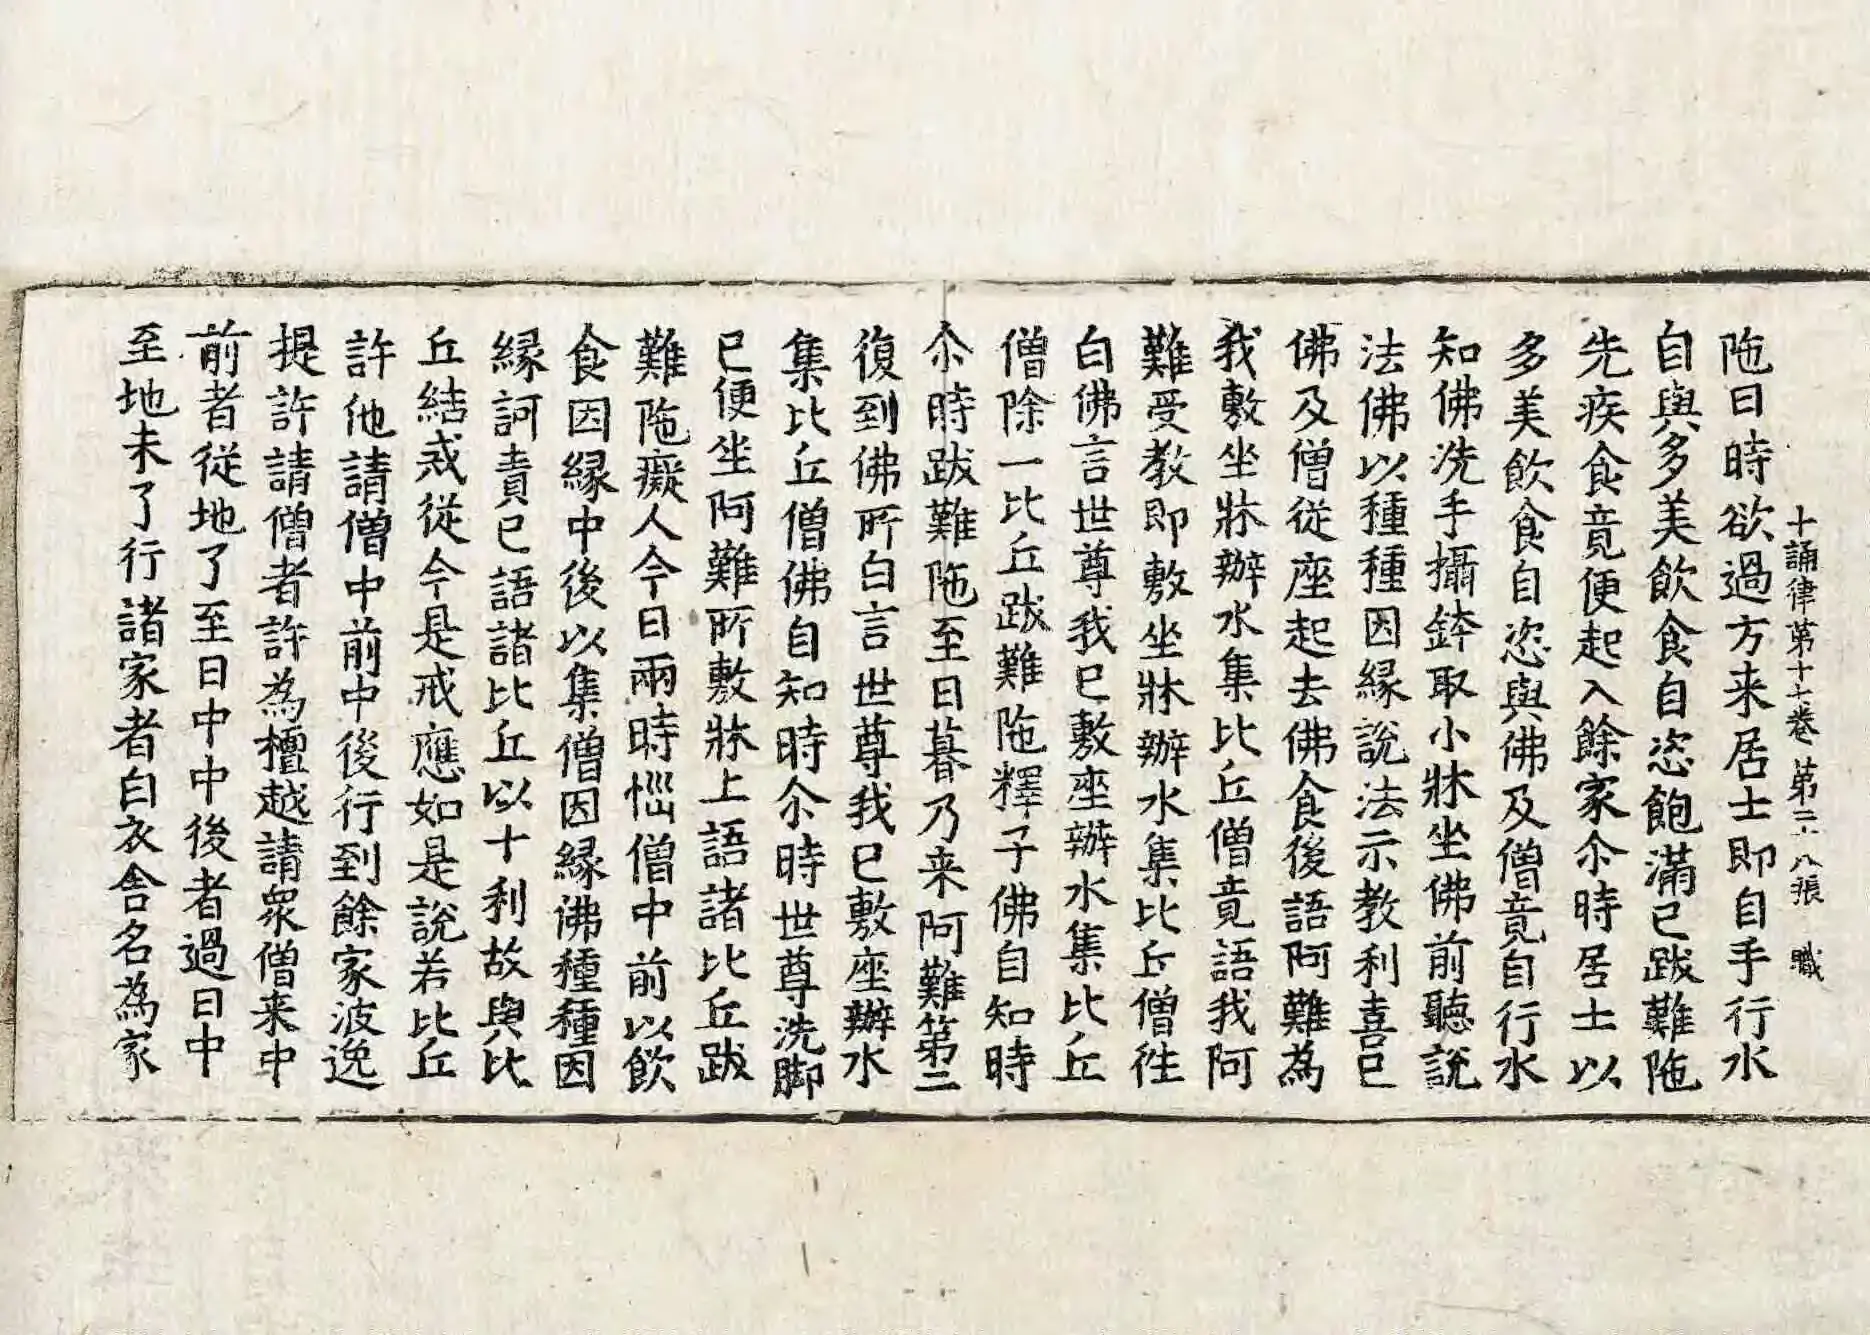 十誦律第十七卷 第二十八張 職
陁日時欲過方来居士即自手行水
自與多美飲食自恣飽滿已跋難陁
先疾食食竟便起入餘家尒時居士以
多美飲食自恣與佛及僧竟自行水
知佛洗手攝鉢取小牀坐佛前聽說
法佛以種種因緣說法示教利喜已
佛及僧從座起去佛食後語阿難為
我敷坐牀辦水集比丘僧竟語我阿
難受教即敷坐牀辦水集比丘僧徃
白佛言世尊我已敷座辦水集比丘
僧除一比丘跋難陁釋子佛自知時
尒時跋難陁至日暮乃来阿難第二
復到佛所白言世尊我已敷座辦水
集比丘僧佛自知時尒時世尊洗脚
已便坐阿難所敷牀上語諸比丘跋
難陁癡人今日兩時惱僧中前以飲
食因緣中後以集僧因緣佛種種因
緣訶責已語諸比丘以十利故與比
丘結戒從今是戒應如是說若比丘
許他請僧中前中後行到餘家波逸
提許請僧者許為檀越請眾僧来中
前者從地了至日中中後者過日中
至地未了行諸家者白衣舍名為家